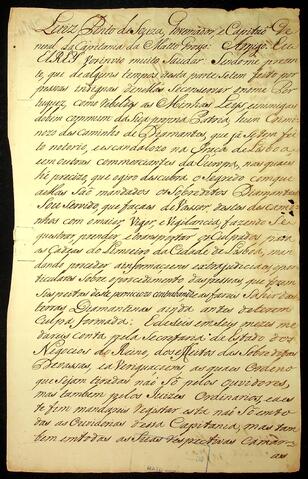 Luiz Pinto de Souza, Governador e Capitaõ Ge-
neral da Capitania de Matto Groço. Amigo. Eu
ELREY vos envio muito Saudar. Sendome prezen-
te, que de alguns tempos a esta parte Se tem feito por
pessoas indignas de nellas Se conservar o nome Por-
tuguez, como rebeldes às Minhas Leys, e inimigos
do bem commum da Sua propria Patria, hum
Contrabando de Diamantes, que já Se tem fei-
to notorio, e escandalozo na Praça de Lisboa,
e em outras commerciantes da Europa, nas quaes
he precizo, que o giro descubra o Segredo com que
a ellas Saõ mandados os Sobreditos Diamantes:
Sou Servido, que façaes devassar, destes descamin-
hos com o maior Vigor, e Vigilancia, fazendo Se-
questrar, prender, e transportar os Culpados para
as Cadeas do Limoeiro da Cidade de Lisboa, e
mandando proceder a informaçoens extrajudiciaes, e par-
ticulares Sobre o procedimento das pessoas que foram
Suspeitas deste pernicioso contrabando, e as façaes Sahir das
terras Diamantinas ainda antes de terem
culpa formada: E de Seis em Seis mezes me
dareis conta pela Secretaria de Estado dos
Negocios do Reino, dos effeitos das Sobreditas
Devassas, e averiguaçoens as quaes Ordeno
que Sejam tiradas naõ Só pelos Ouvidores,
mas tambem pelos Juizes Ordinarios, e a es-
te fim mandareis registar esta naõ Só em to-
das as Ouvidorias dessa Capitania, mas tam-
bem em todas as Suas respectivas Camaras